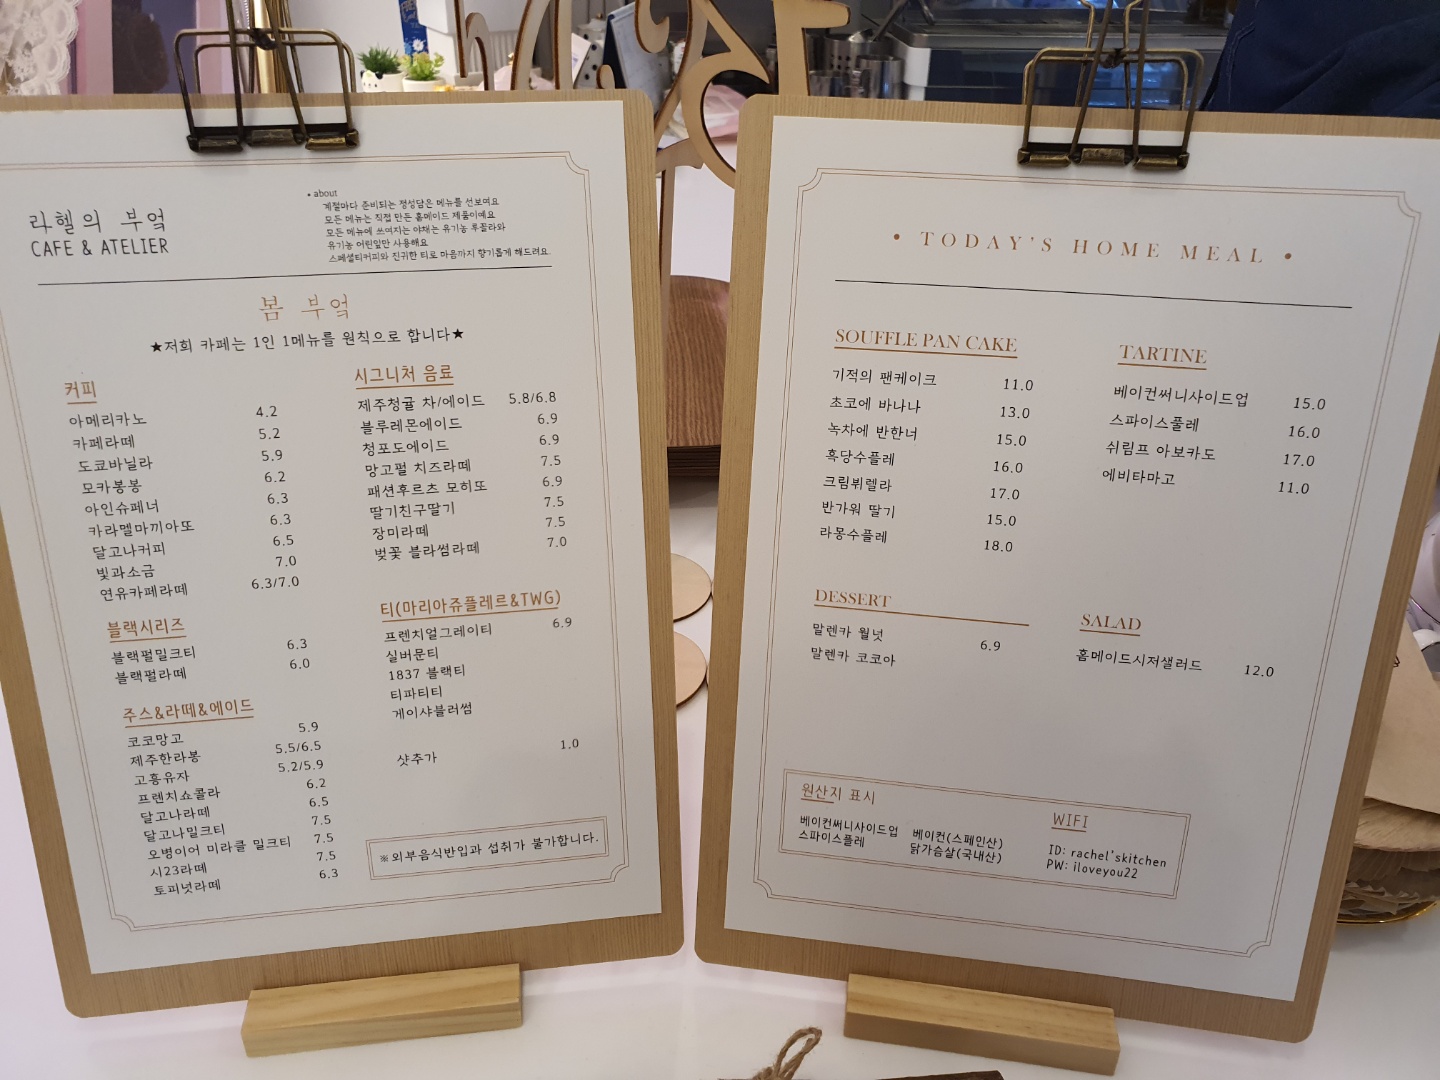 라헬의 부엌
CAFE & ATELIER
• about
계절마다 준비되는 정성담은 메뉴를 선보여요
모든 메뉴는 직접 만든 홈메이드 제품이예요
모든 메뉴에 쓰여지는 야채는 유기농 루꼴라와
유기농 어린잎만 사용해요
스페셜티커피와 진귀한 티로 마음까지 향기롭게 해드려요.
봄 부엌
★저희 카페는 1인 1메뉴를 원칙으로 합니다★
커피
아메리카노 4.2
카페라떼 5.2
도쿄바닐라 5.9
모카봉봉 6.2
아인슈페너 6.3
카라멜마끼아또 6.3
달고나커피 6.5
빛과소금 7.0
연유카페라떼 6.3/7.0
블랙시리즈
블랙펄밀크티 6.3
블랙펄라떼 6.0
주스&라떼&에이드
코코망고 5.9
제주한라봉 5.5/6.5
고흥유자 5.2/5.9
프렌치쇼콜라 6.2
달고나라떼 6.5
달고나밀크티 7.5
오병이어 미라클 밀크티 7.5
시23라떼 7.5
토피넛라떼 6.3
시그니처 음료
제주청귤 차/에이드 5.8/6.8
블루레몬에이드 6.9
청포도에이드 6.9
망고펄 치즈라떼 7.5
패션후르츠 모히또 6.9
딸기친구딸기 7.5
장미라떼 7.5
벚꽃 블라썸라떼 7.0
티(마리아쥬플레르&TWG)
프렌치얼그레이티 6.9
실버문티
1837 블랙티
티파티티
게이샤블러썸
샷추가 1.0
※외부음식반입과 섭취가 불가합니다.
• TODAY'S HOME MEAL •
SOUFFLE PAN CAKE
기적의 팬케이크 11.0
초코에 바나나 13.0
녹차에 반한너 15.0
흑당수플레 16.0
크림뷔렐라 17.0
반가워 딸기 15.0
라몽수플레 18.0
TARTINE
베이컨써니사이드업 15.0
스파이스풀레 16.0
쉬림프 아보카도 17.0
에비타마고 11.0
DESSERT
말렌카 월넛 6.9
말렌카 코코아
SALAD
홈메이드시저샐러드 12.0
원산지 표시
베이컨써니사이드업 베이컨(스페인산)
스파이스플레 닭가슴살(국내산)
WIFI
ID: rachel'skitchen
PW: iloveyou22